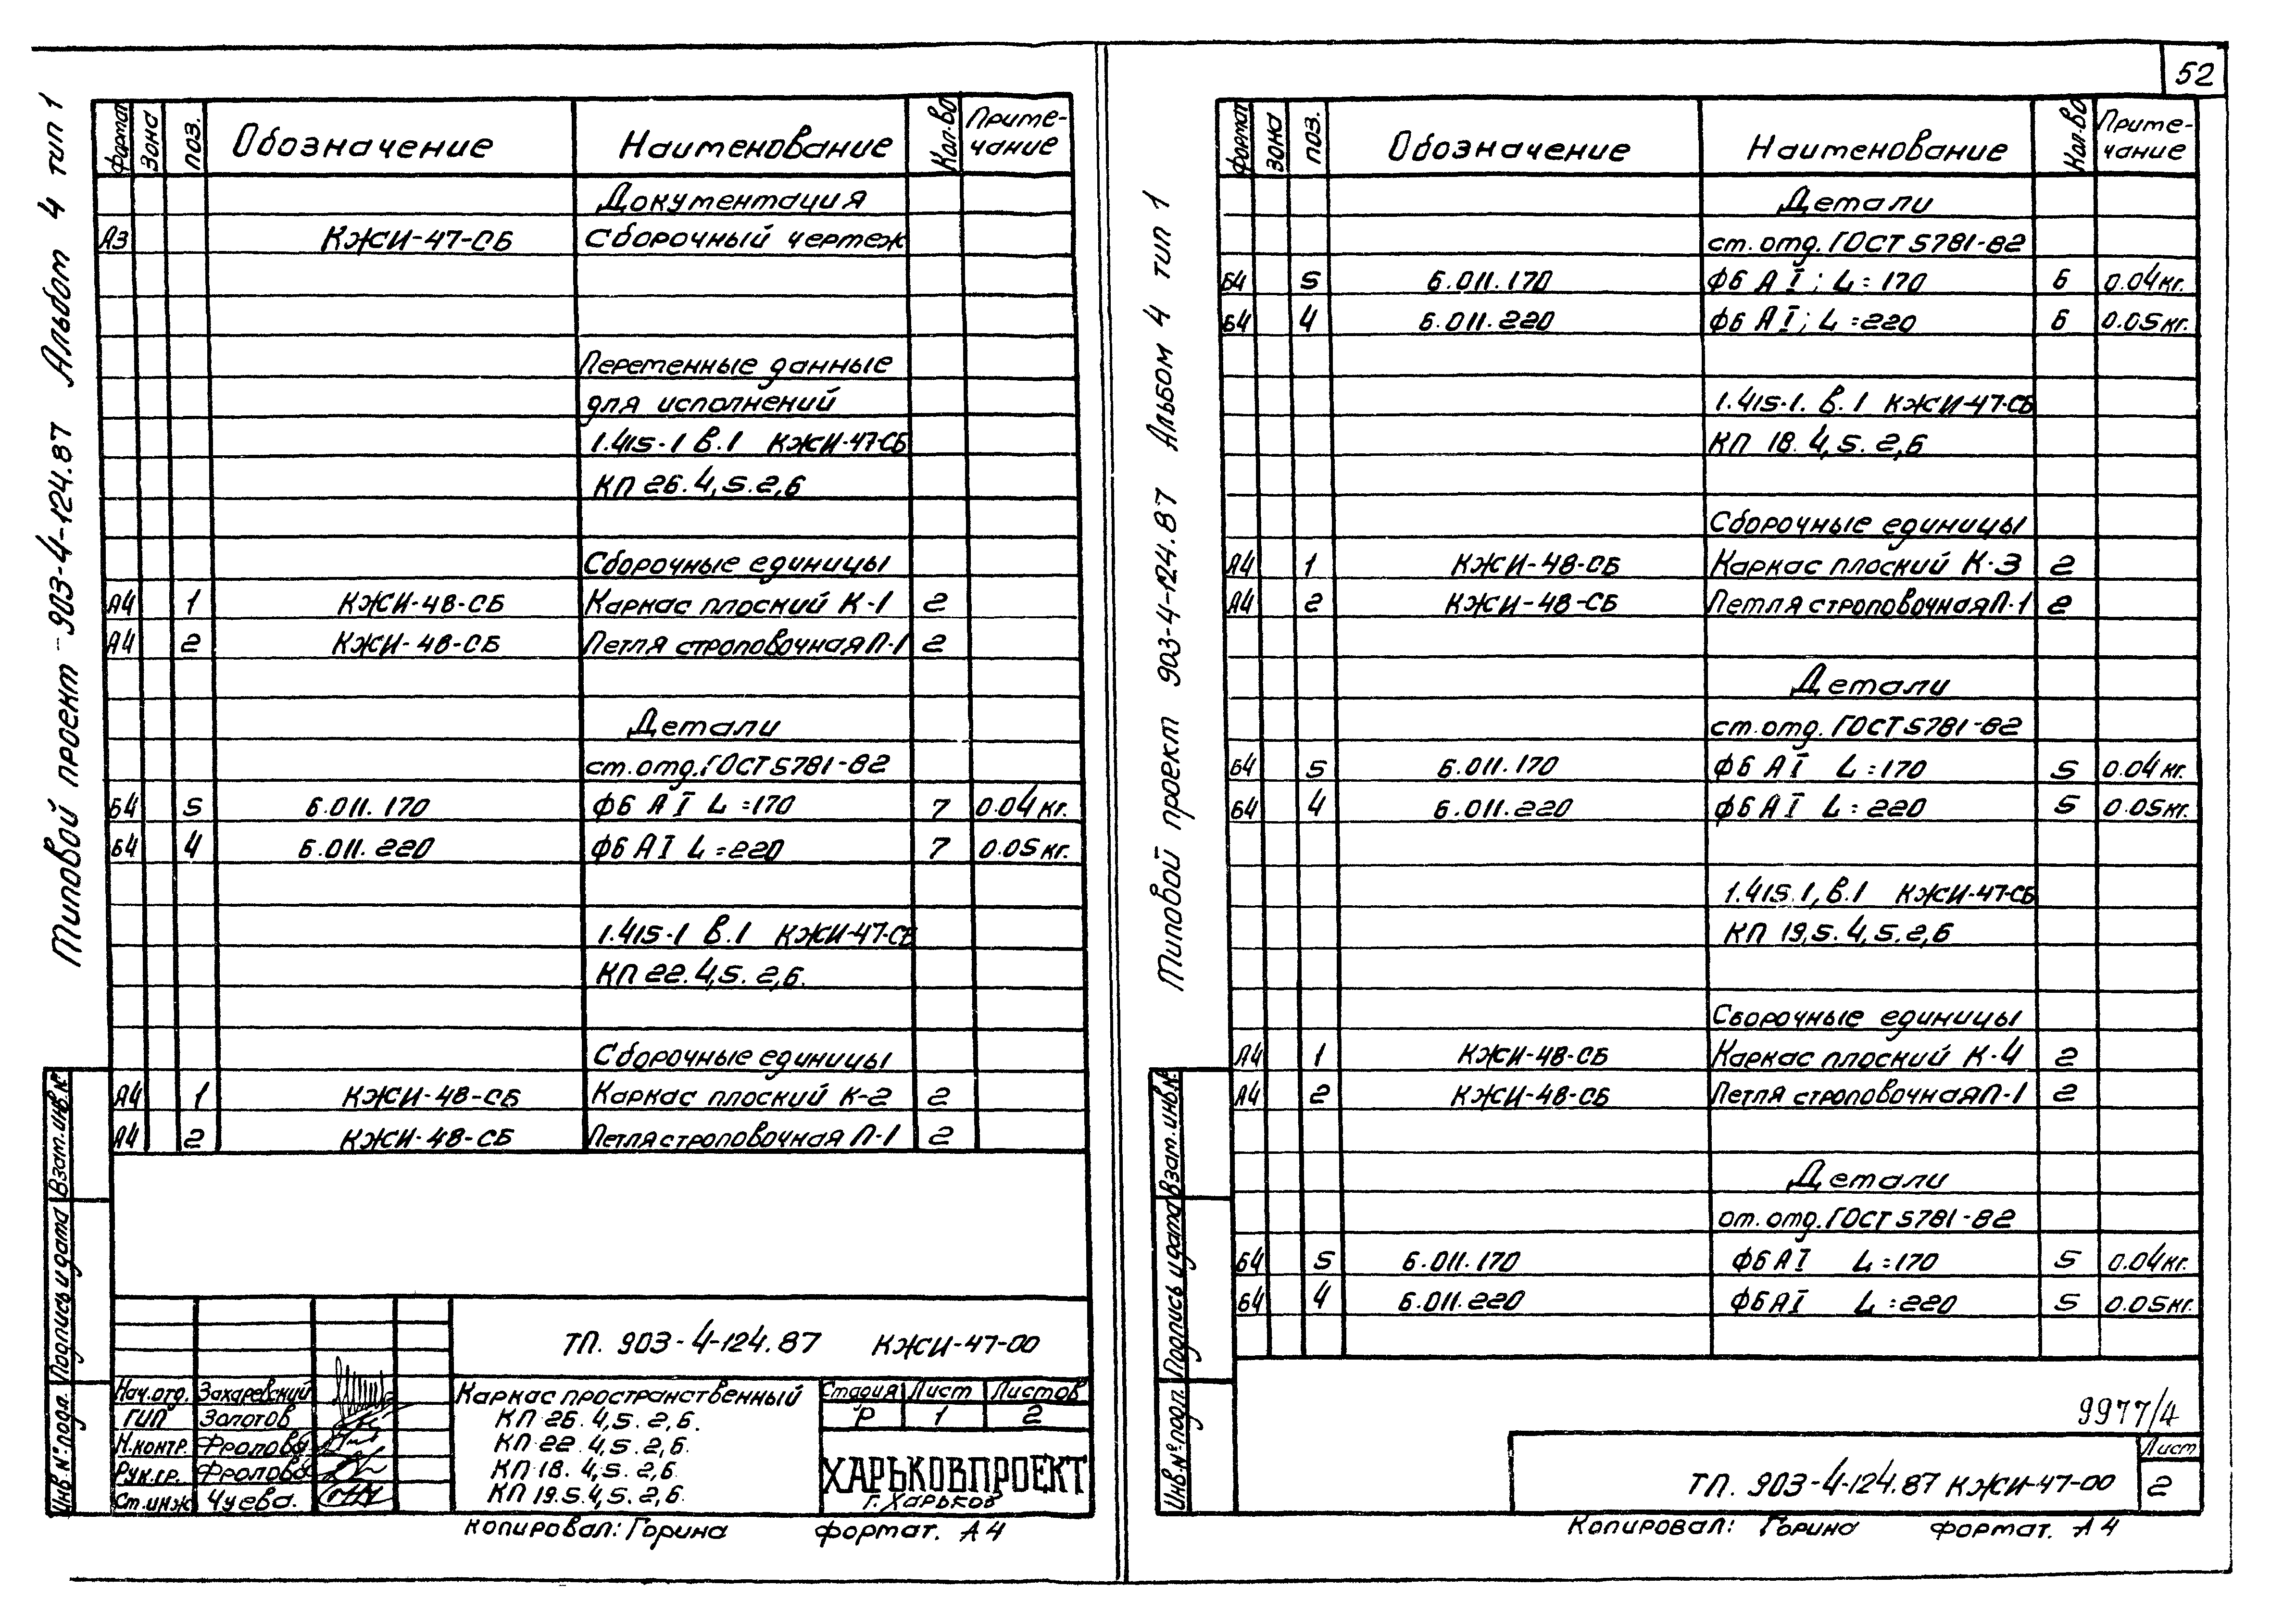 Типовой проект 903-4-124.87 Альбом 4 тип 1
Формат Зона поз. Обозначение Наименование Кол-во Приме-
чание
Документация
А3 КЖСИ-47-СБ Сборочный чертеж
Переменные данные
для исполнений
1.415-1 в.1 КЖСИ-47-СБ
КП 26.4,5.2,6
Сборочные единицы
А4 1 КЖСИ-48-СБ Каркас плоский К-1 2
А4 2 КЖСИ-48-СБ Петля строповочная П-1 2
Детали
ст. отд. ГОСТ 5781-82
Б4 5 6.011.170 Ф6 А I L=170 7 0.04 кг.
Б4 4 6.011.220 Ф6 А I L=220 7 0.05 кг.
1.415-1 в.1 КЖСИ-47-СБ
КП 22.4,5.2,6.
Сборочные единицы
А4 1 КЖСИ-48-СБ Каркас плоский К-2 2
А4 2 КЖСИ-48-СБ Петля строповочная П-1 2
Взам.инв.№
Подпись и дата
Инв.№ подл.
ТП. 903-4-124.87 КЖСИ-47-00
Нач.отд. Захаревский
ГИП Золотов
Н.контр. Фролова
Рук.гр. Фролова
Ст.инж Чуева.
Каркас пространственный
КП 26.4,5.2,6.
КП 22.4,5.2,6.
КП 18.4,5.2,6.
КП 19.5.4,5.2,6.
Стадия Лист Листов
Р 1 2
ХАРЬКОВПРОЕКТ
г. Харьков
Копировал: Горина формат. А4
52
Типовой проект 903-4-124.87 Альбом 4 тип 1
Формат Зона поз. Обозначение Наименование Кол-во Приме-
чание
Детали
ст. отд. ГОСТ 5781-82
Б4 5 6.011.170 Ф6 А I; L=170 6 0.04 кг.
Б4 4 6.011.220 Ф6 А I; L=220 6 0.05 кг.
1.415-1. в.1 КЖСИ-47-СБ
КП 18.4,5.2,6
Сборочные единицы
А4 1 КЖСИ-48-СБ Каркас плоский К-3 2
А4 2 КЖСИ-48-СБ Петля строповочная П-1 2
Детали
ст. отд. ГОСТ 5781-82
Б4 5 6.011.170 Ф6 А I L=170 5 0.04 кг.
Б4 4 6.011.220 Ф6 А I L=220 5 0.05 кг.
1.415.1, в.1 КЖСИ-47-СБ
КП 19,5.4,5.2,6
Сборочные единицы
А4 1 КЖСИ-48-СБ Каркас плоский К-4 2
А4 2 КЖСИ-48-СБ Петля строповочная П-1 2
Детали
от. отд. ГОСТ 5781-82
Б4 5 6.011.170 Ф6 А I L=170 5 0.04 кг.
Б4 4 6.011.220 Ф6 А I L=220 5 0.05 кг.
Взам.инв.№
Подпись и дата
Инв.№ подл.
9977/4
ТП. 903-4-124.87 КЖСИ-47-00
Лист
2
Копировал: Горина формат. А4